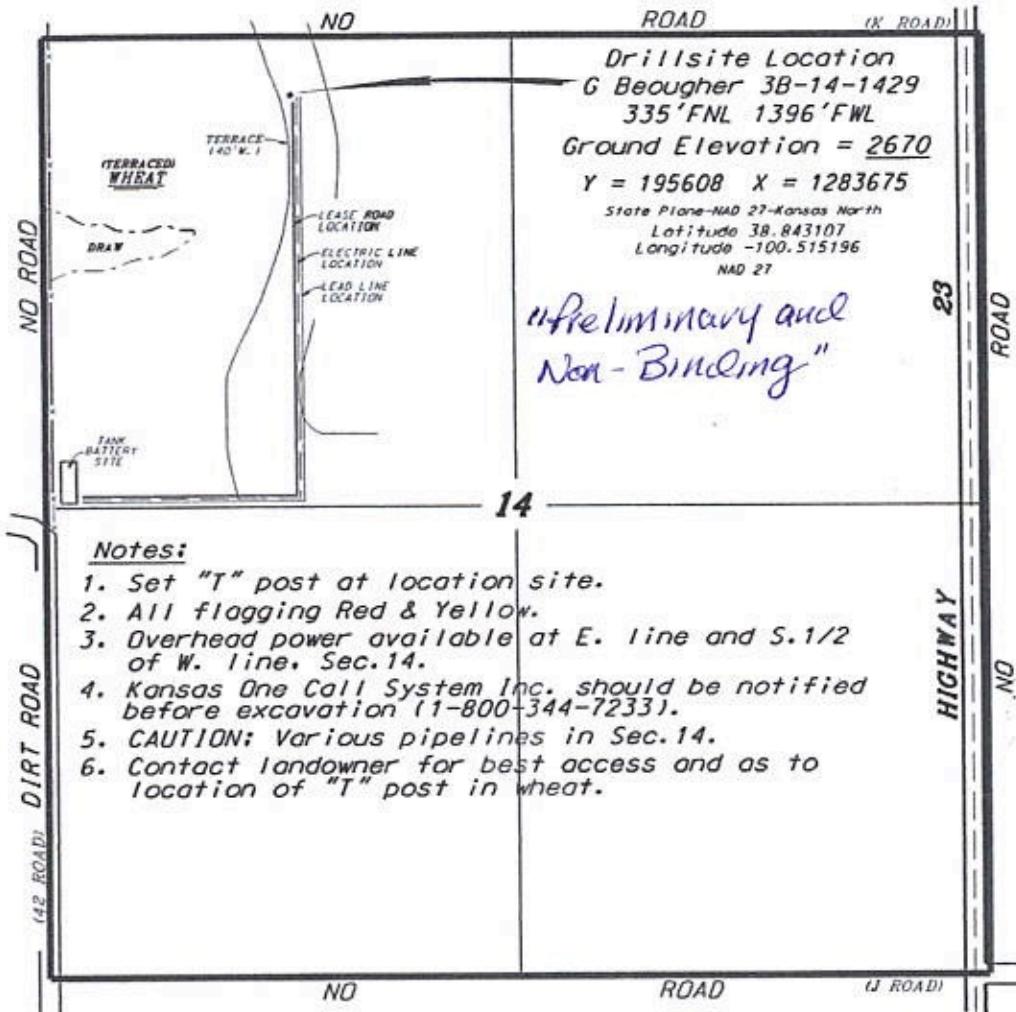 NO ROAD (K ROAD)
Drillsite Location
G Beougher 3B-14-1429
335'FNL 1396'FWL
Ground Elevation = 2670
Y = 195608 X = 1283675
State Plane-NAD 27-Kansas North
Latitude 38.843107
Longitude -100.515196
NAD 27
"Preliminary and
Non-Binding"
TERRACE
(40'W.)
(TERRACED)
WHEAT
DRAW
LEASE ROAD
LOCATION
ELECTRIC LINE
LOCATION
LEAD LINE
LOCATION
TANK
BATTERY
SITE
NO ROAD
14
23
ROAD
HIGHWAY
NO
DIRT ROAD
(42 ROAD)
Notes:
1. Set "T" post at location site.
2. All flagging Red & Yellow.
3. Overhead power available at E. line and S.1/2
of W. line, Sec.14.
4. Kansas One Call System Inc. should be notified
before excavation (1-800-344-7233).
5. CAUTION: Various pipelines in Sec.14.
6. Contact landowner for best access and as to
location of "T" post in wheat.
NO ROAD (J ROAD)